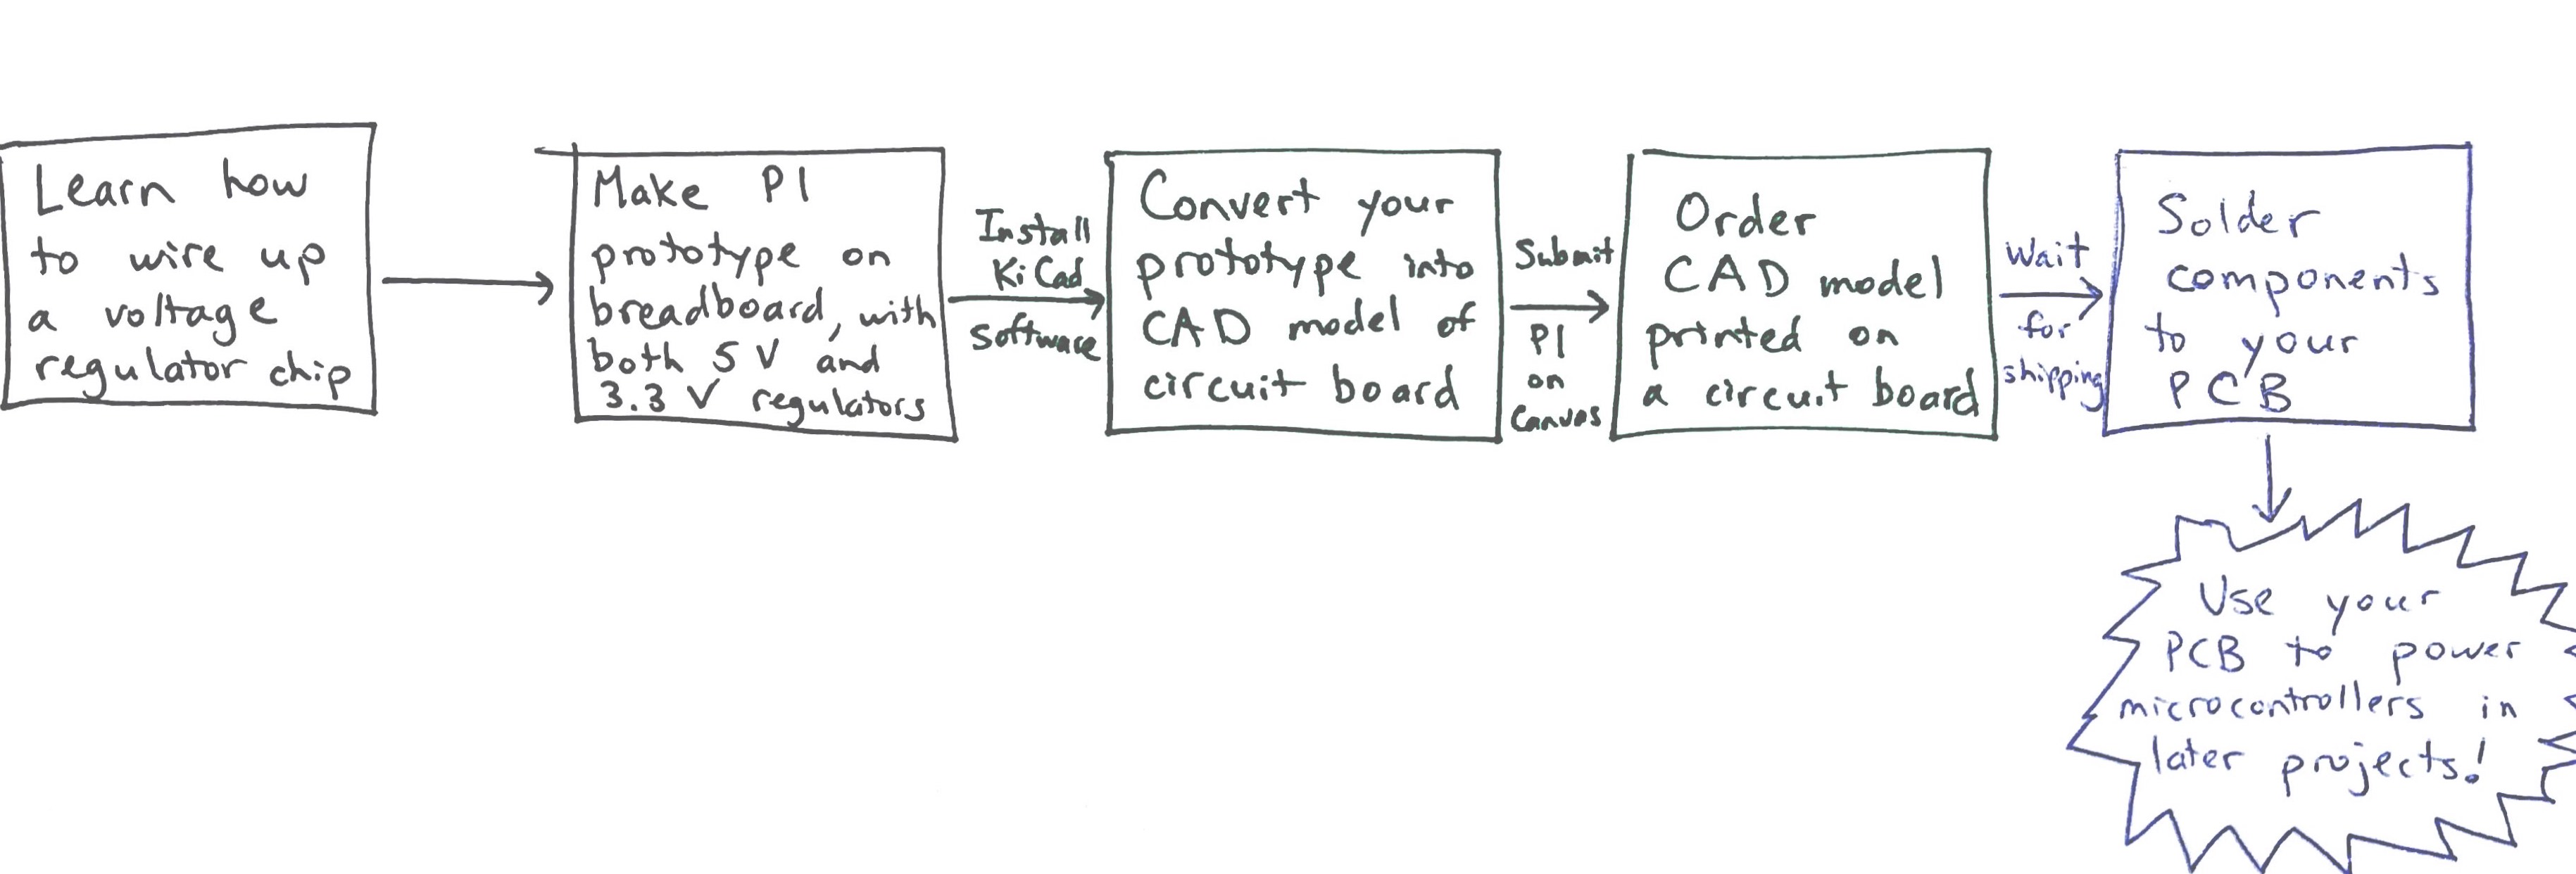 Learn how
to wire up
a voltage
regulator chip
Make P1
prototype on
breadboard, with
both 5 V and
3.3 V regulators
Install
KiCad
Software
Convert your
prototype into
CAD model of
circuit board
Submit
P1
on
Canvas
Order
CAD model
printed on
a circuit board
Wait
for
shipping
Solder
components
to your
PCB
Use your
PCB to power
microcontrollers in
later projects!